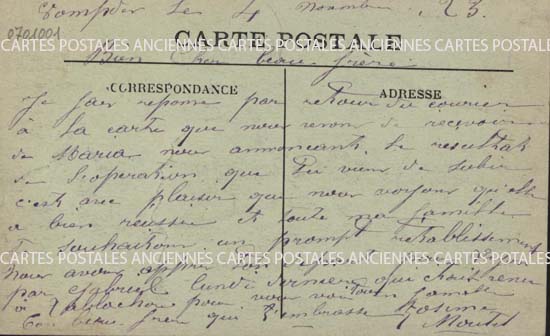 le 4 Novembre 23.
0701001
CARTE POSTALE
CARTES POSTALES ANCIENNES CARTES POSTALES ANCIENNES CARTES POSTALES
Bien cher beau frère
CORRESPONDANCE
ADRESSE
Je fais reponse par retour du courier
à la carte que nous venons de recevoir
de Maria nous annoncant le resultat
de l'operation que tu viens de subir
c'est avec plaisir que nous voyons qu'elle
a bien reussie et toute ma famille
te souhaitons un prompt retablissement
CARTES POSTALES ANCIENNES CARTES POSTALES ANCIENNES CARTES POSTALES
nous avons appris
par Gabriel lundi dernier qui était venu
à pour vous famille
Ton beau frère qui t'embrasse